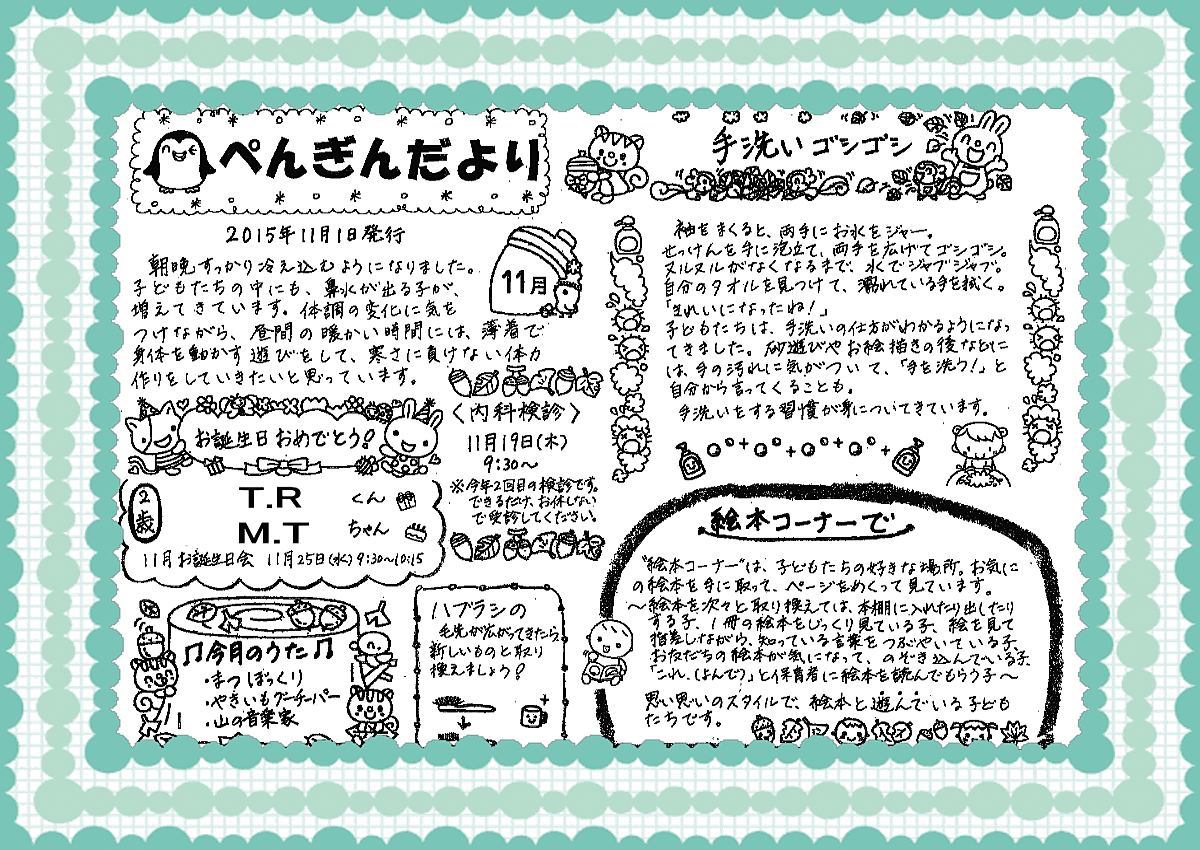 ぺんぎんだより
2015年11月1日発行
11月
朝晩すっかり冷え込むようになりました。
子どもたちの中にも、鼻水が出る子が、
増えてきています。体調の変化に気を
つけながら、昼間の暖かい時間には、薄着で
身体を動かす遊びをして、寒さに負けない体力
作りをしていきたいと思っています。
お誕生日おめでとう!
2歳
T.R くん
M.T ちゃん
11月お誕生日会 11月25日(水)9:30~10:15
〈内科検診〉
11月19日(木)
9:30~
※今年2回目の検診です。
できるだけ、お休みしない
で受診してください。
♫今月のうた♫
・まつぼっくり
・やきいもグーチーパー
・山の音楽家
ハブラシの
毛先が広がってきたら、
新しいものと取り
換えましょう!
手洗いゴシゴシ
袖をまくると、両手にお水をジャー。
せっけんを手に泡立て、両手を広げてゴシゴシ。
ヌルヌルがなくなるまで、水でジャブジャブ。
自分のタオルを見つけて、濡れている手を拭く。
「きれいになったね!」
子どもたちは、手洗いの仕方がわかるようになっ
てきました。砂遊びやお絵描きの後などに
は、手の汚れに気がついて、「手を洗う!」と
自分から言ってくることも。
手洗いをする習慣が身についてきています。
絵本コーナーで
"絵本コーナー"は、子どもたちの好きな場所。お気に
の絵本を手に取って、ページをめくって見ています。
~絵本を次々と取り換えては、本棚に入れたり出したり
する子、1冊の絵本をじっくり見ている子、絵を見て
指差しながら、知っている言葉をつぶやいている子、
お友だちの絵本が気になって、のぞき込んでいる子、
「これ、(よんで)」と保育者に絵本を読んでもらう子~
思い思いのスタイルで、絵本と遊んでいる子ども
たちです。